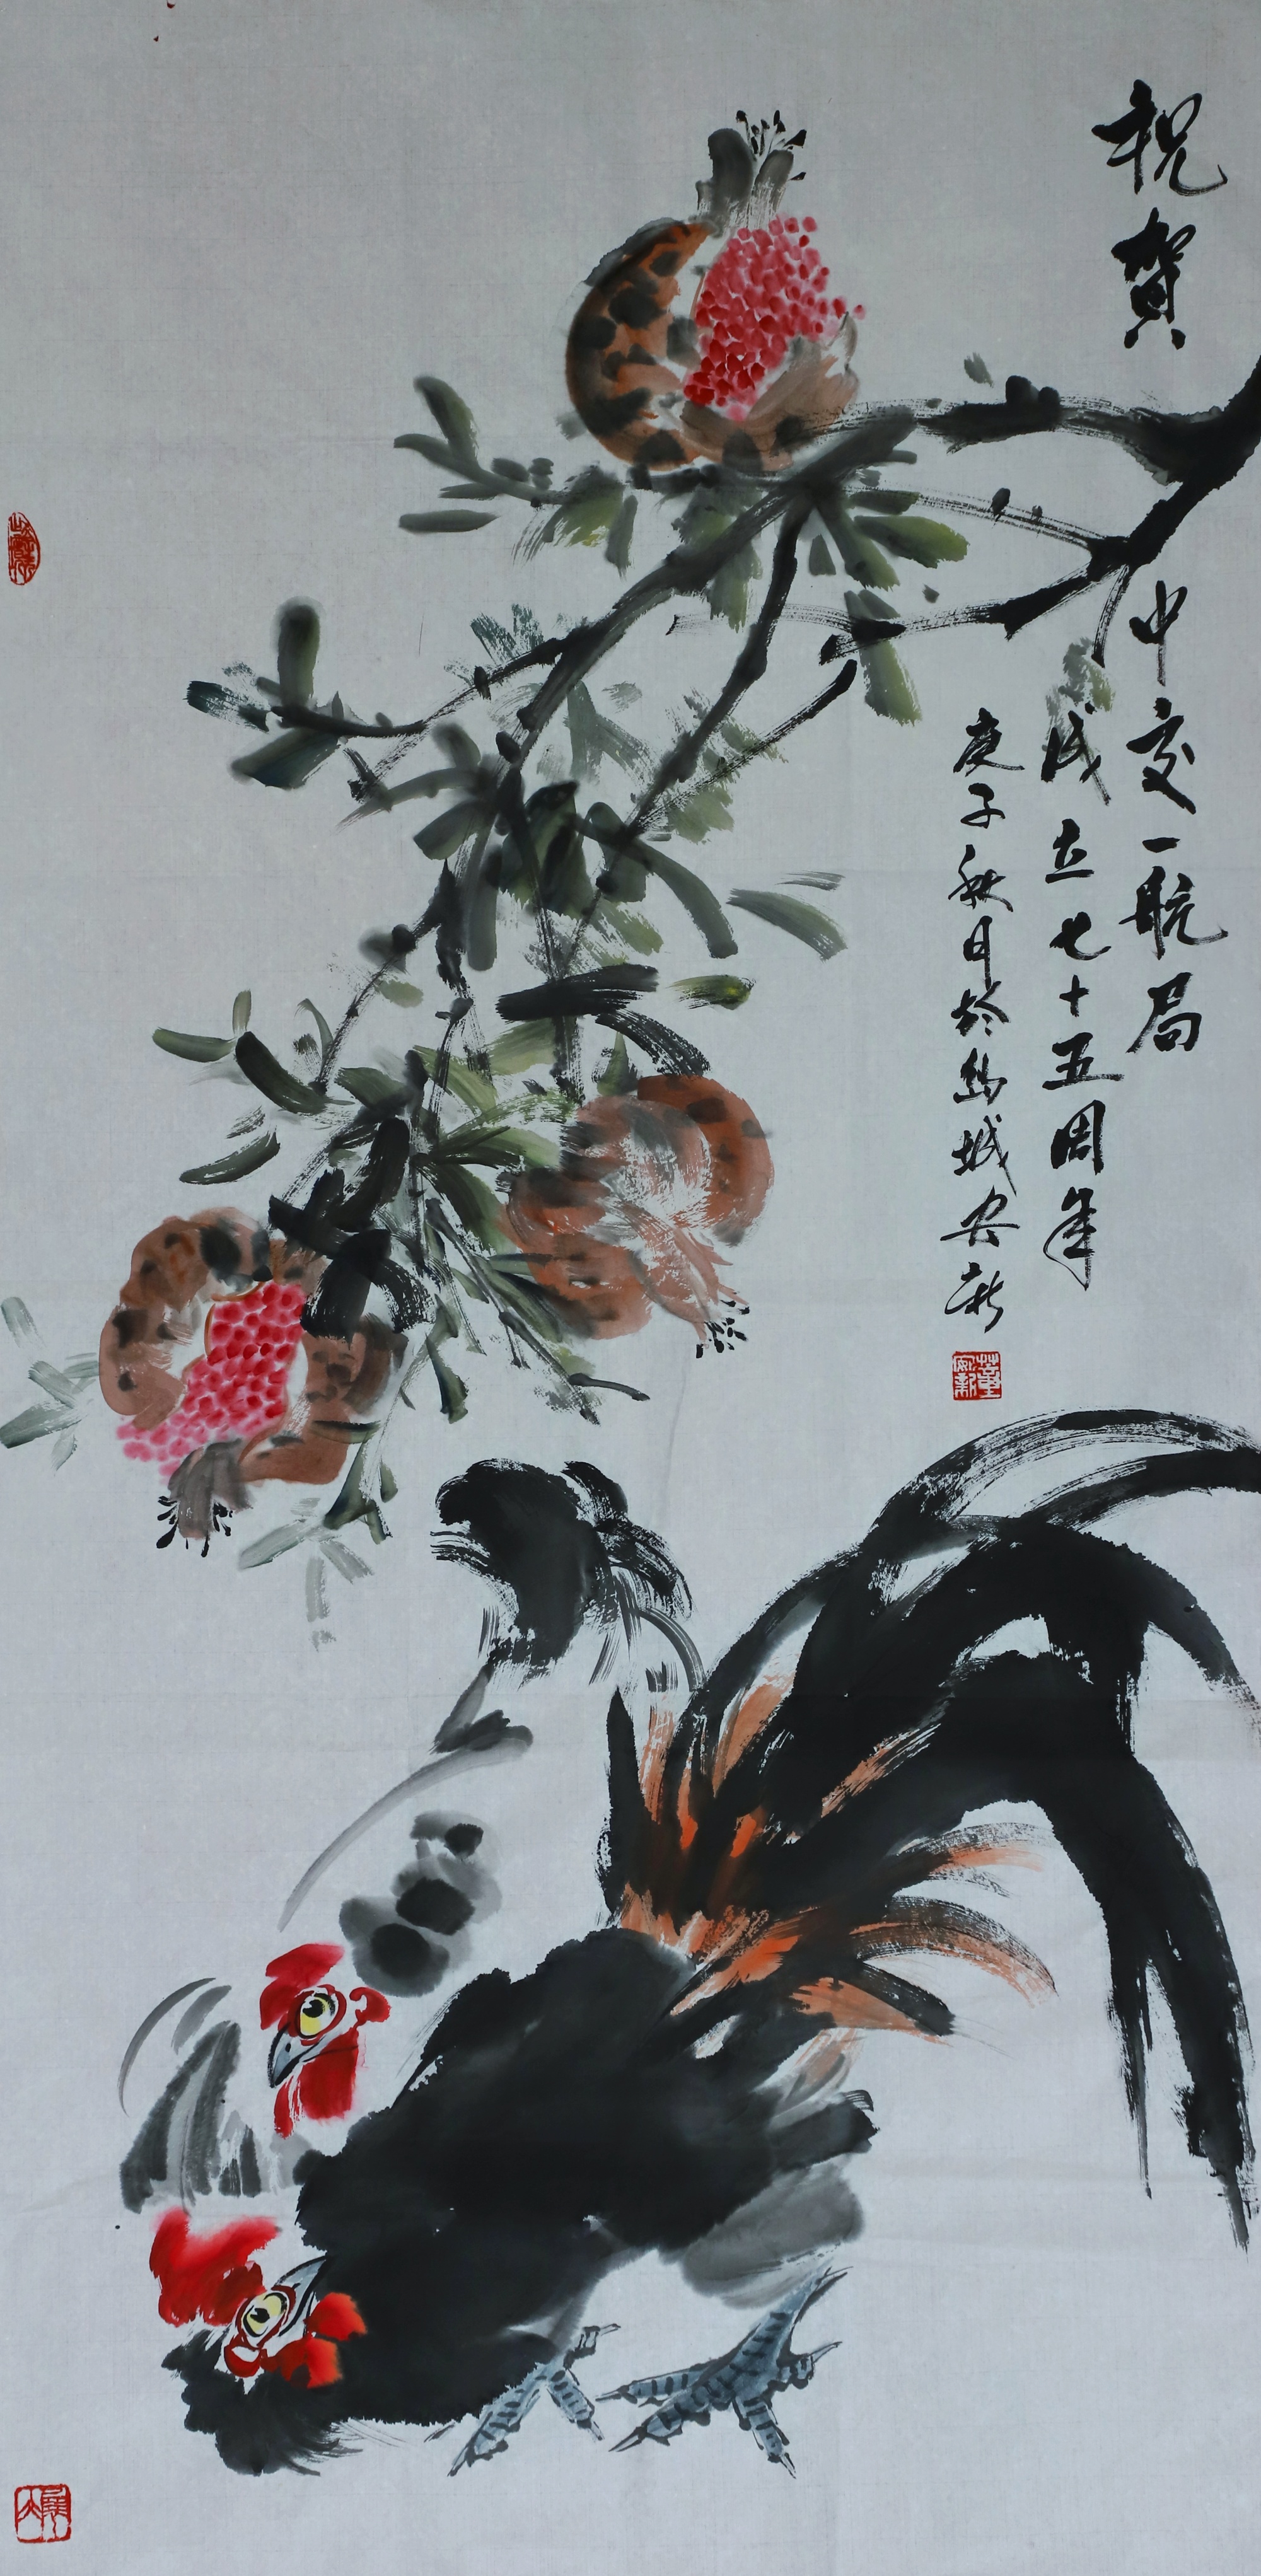 祝賀
中交一航局
成立七十五周年
庚子秋月於島城安新
董安新